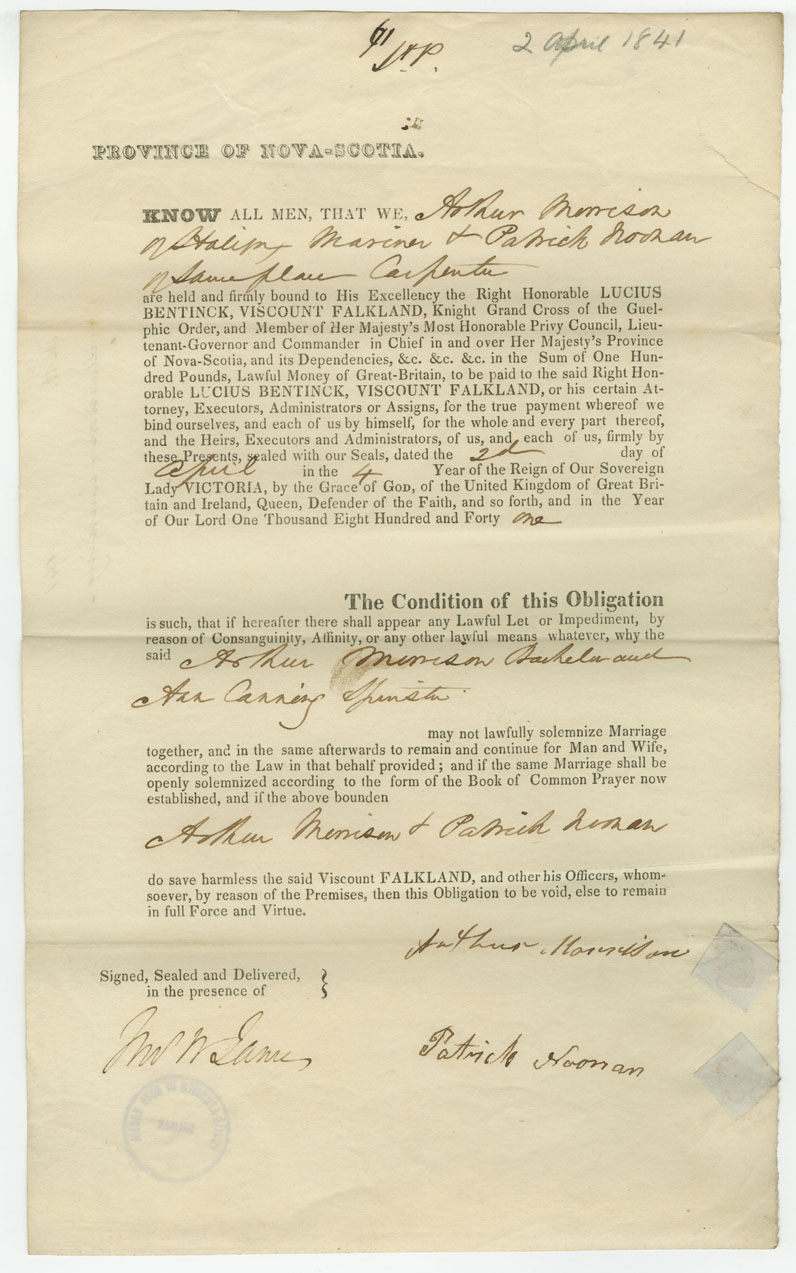 2 April 1841
PROVINCE OF NOVA-SCOTIA.
KNOW ALL MEN, THAT WE, Arthur Morrison
of Halifax Mariner & Patrick Noonan
of Same place Carpenter
are held and firmly bound to His Excellency the Right Honorable LUCIUS
BENTINCK, VISCOUNT FALKLAND, Knight Grand Cross of the Guel-
phic Order, and Member of Her Majesty's Most Honorable Privy Council, Lieu-
tenant-Governor and Commander in Chief in and over Her Majesty's Province
of Nova-Scotia, and its Dependencies, &c. &c. &c. in the Sum of One Hun-
dred Pounds, Lawful Money of Great-Britain, to be paid to the said Right Hon-
orable LUCIUS BENTINCK, VISCOUNT FALKLAND, or his certain At-
torney, Executors, Administrators or Assigns, for the true payment whereof we
bind ourselves, and each of us by himself, for the whole and every part thereof,
and the Heirs, Executors and Administrators, of us, and each of us, firmly by
these Presents, sealed with our Seals, dated the 2d day of
April in the 4 Year of the Reign of Our Sovereign
Lady VICTORIA, by the Grace of GOD, of the United Kingdom of Great Bri-
tain and Ireland, Queen, Defender of the Faith, and so forth, and in the Year
of Our Lord One Thousand Eight Hundred and Forty one
The Condition of this Obligation
is such, that if hereafter there shall appear any Lawful Let or Impediment, by
reason of Consanguinity, Affinity, or any other lawful means whatever, why the
said Arthur Morrison Bachelor and
Ann Canning Spinster
may not lawfully solemnize Marriage
together, and in the same afterwards to remain and continue for Man and Wife,
according to the Law in that behalf provided; and if the same Marriage shall be
openly solemnized according to the form of the Book of Common Prayer now
established, and if the above bounden
Arthur Morrison & Patrick Noonan
do save harmless the said Viscount FALKLAND, and other his Officers, whom-
soever, by reason of the Premises, then this Obligation to be void, else to remain
in full Force and Virtue.
Arthur Morrison
Signed, Sealed and Delivered,
in the presence of
Patrick Noonan